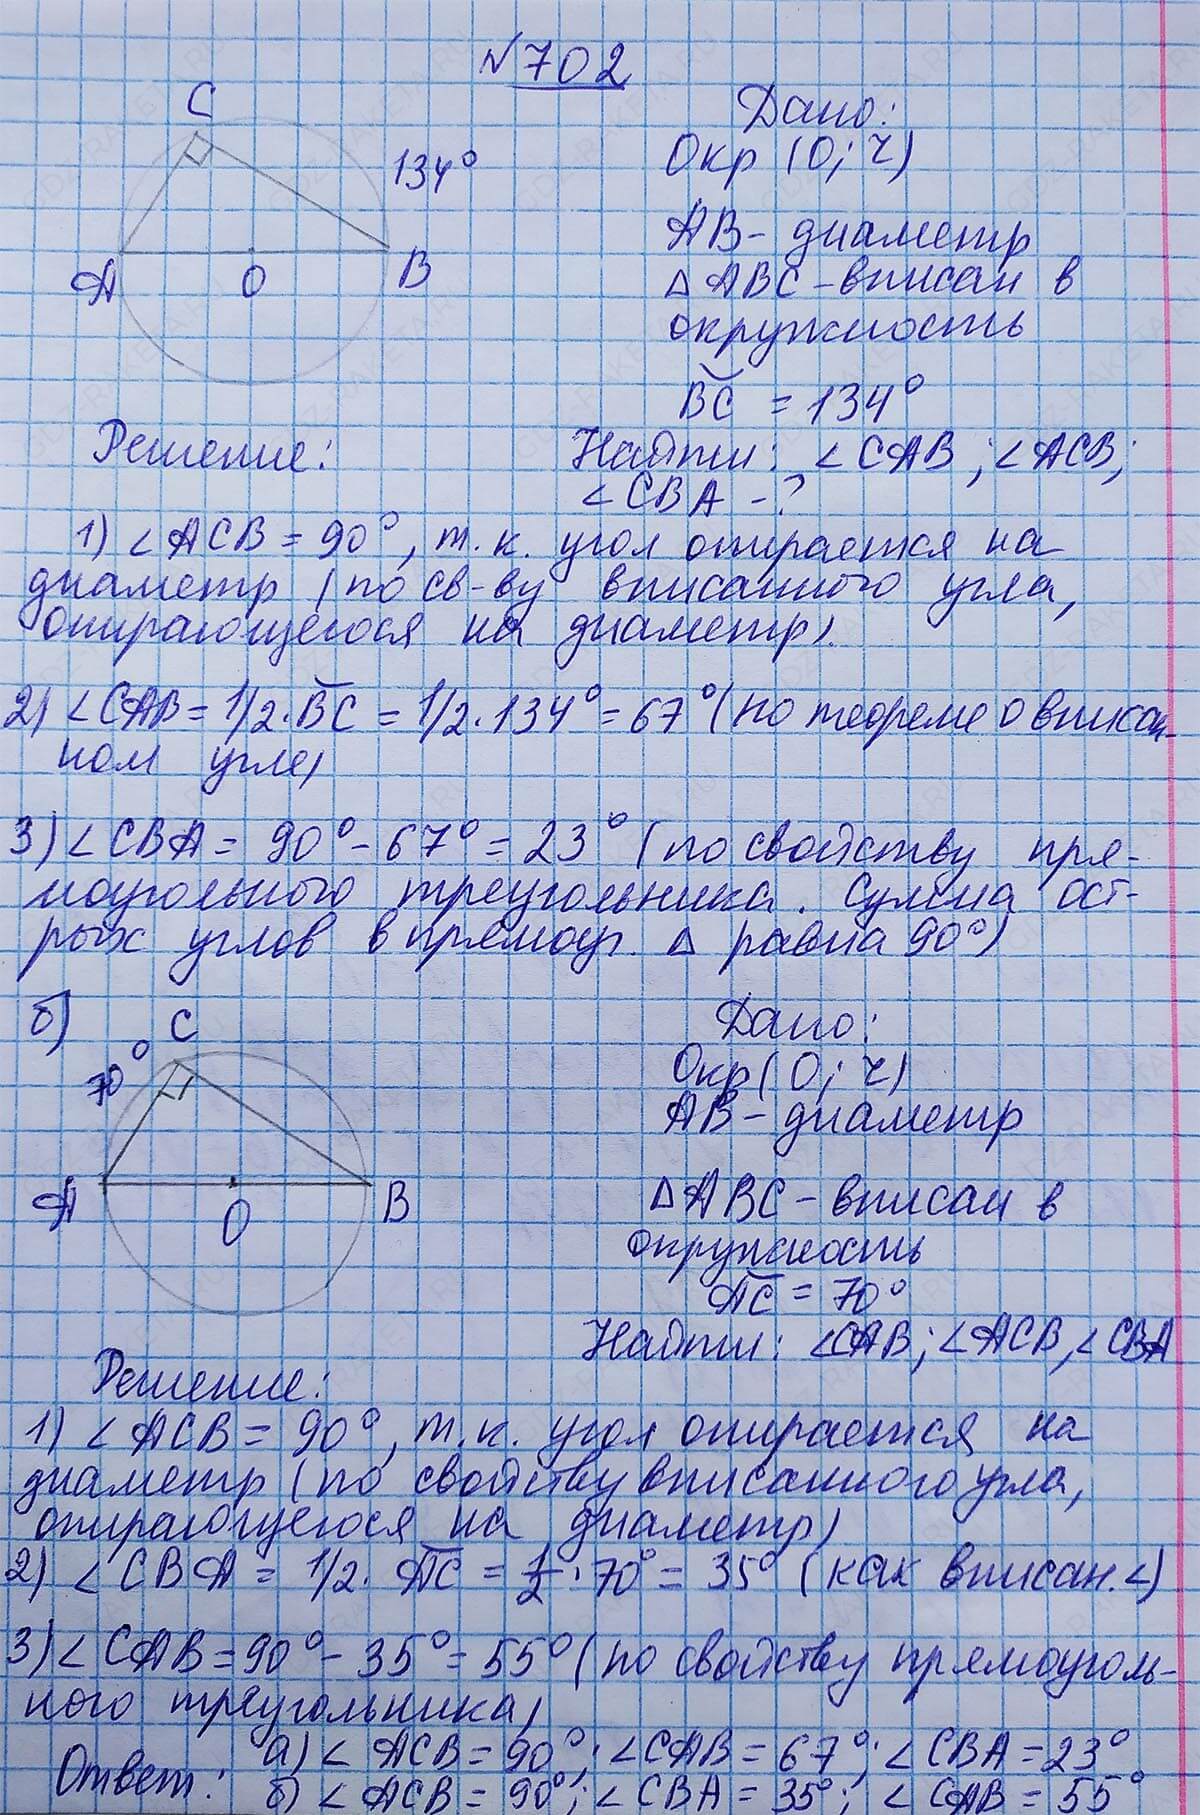 №702
C
134°
A
O
B
Дано:
Окр (O; r)
AB - диаметр
△ ABC - вписан в
окружность
BC = 134°
Найти: ∠CAB; ∠ACB;
∠CBA - ?
Решение:
1) ∠ACB = 90°, т.к. угол опирается на
диаметр (по св-ву вписанного угла,
опирающегося на диаметр).
2) ∠CAB = 1/2 · BC = 1/2 · 134° = 67° (по теореме о вписан-
ном угле)
3) ∠CBA = 90° - 67° = 23° (по свойству пря-
моугольного треугольника. Сумма ост-
рых углов в прямоуг. △ равна 90°)
б)
C
70°
A
O
B
Дано:
Окр (O; r)
AB - диаметр
△ ABC - вписан в
окружность
AC = 70°
Найти: ∠CAB; ∠ACB, ∠CBA
Решение:
1) ∠ACB = 90°, т.к. угол опирается на
диаметр (по свойству вписанного угла,
опирающегося на диаметр)
2) ∠CBA = 1/2 · AC = 1/2 · 70° = 35° (как вписан. ∠)
3) ∠CAB = 90° - 35° = 55° (по свойству прямоуголь-
ного треугольника)
Ответ: а) ∠ACB = 90°; ∠CAB = 67°; ∠CBA = 23°
б) ∠ACB = 90°; ∠CBA = 35°; ∠CAB = 55°